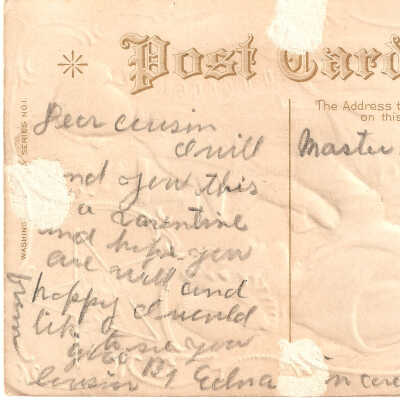 Post Card
The Address t
on this
WASHING
SERIES NO.1
Dear cousin
I will
Master
end you this
a valentine
and hope you
are well and
happy I would
like
to see you
from
cousin
Edna
in care